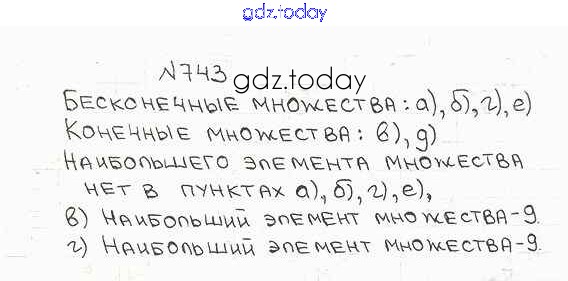 gdz.today
№743
gdz.today
БЕСКОНЕЧНЫЕ МНОЖЕСТВА: а), б), г), е)
КОНЕЧНЫЕ МНОЖЕСТВА: в), д)
НАИБОЛЬШЕГО ЭЛЕМЕНТА МНОЖЕСТВА
НЕТ В ПУНКТАХ а), б), г), е),
в) НАИБОЛЬШИЙ ЭЛЕМЕНТ МНОЖЕСТВА-9.
г) НАИБОЛЬШИЙ ЭЛЕМЕНТ МНОЖЕСТВА-9.
gdz.today